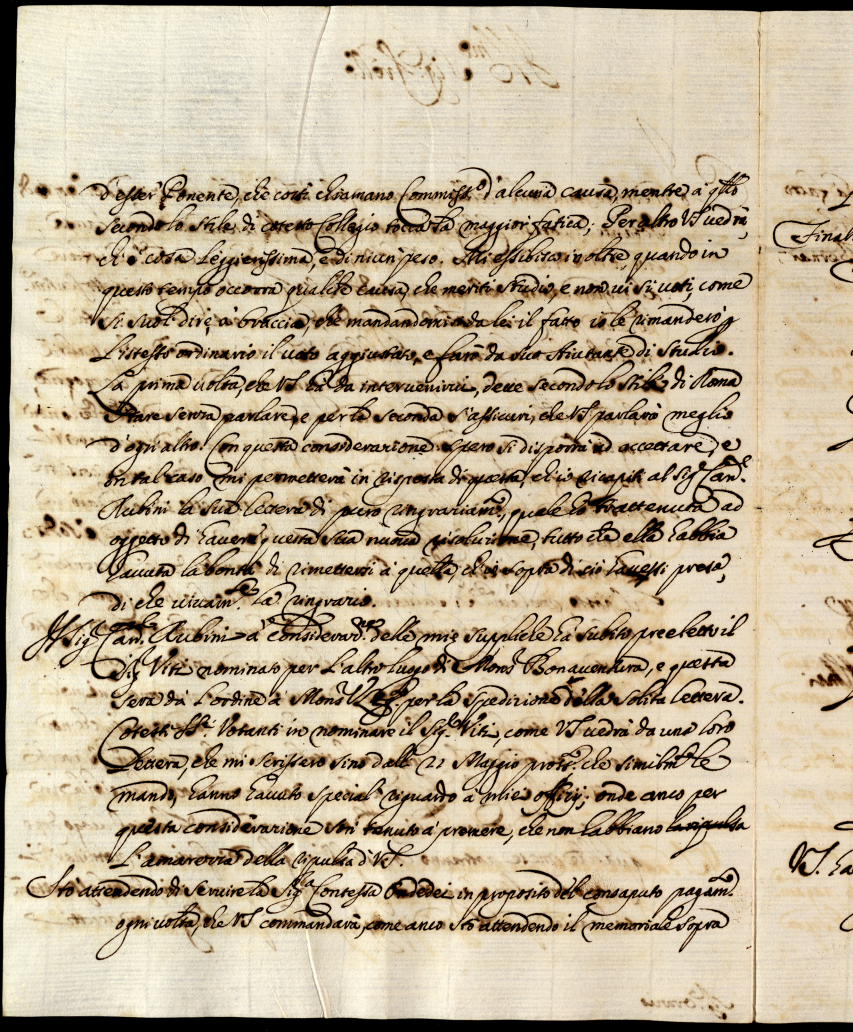 d'esser Ponente, che costì chiamano Commiss.º d'alcuna causa, mentre à q.sto
secondo lo stile di cotesto Collegio tocca la maggior fatica; Per altro VS vedrà,
ch'è cosa leggierissima, e di niun peso. Mi essibisco in oltre, quando in
questo tempo occorra qualche causa, che meriti studio, e non vi si voti, come
si suol dire à braccia, che mandandomi da lei il fatto io le rimanderò
l'istesso ordinario il voto aggiustato, e farò da suo Aiutante di Studio.
La prima volta, che VS hà da intervenirvi, deve secondo lo stile di Roma
stare senza parlare, e per la seconda s'assicuri, che VS parlarà meglio
d'ogni altro. Con questa considerazione spero si disporrà ad accettare, e
in tal caso mi permetterà in risposta di questa, ch'io ricapiti al Sig.r Card.e
Rubini la sua lettera di puro ringraziam.to, quale hò trattenuta ad
oggetto di havere questa sua nuova risoluzione, tutto che ella habbia
havuta la bontà di rimettersi à quella, ch'io sopra di ciò havessi presa,
di che vivam.te la ringrazio.
Il Sig.r Card. Rubini à considerat.ne delle mie suppliche hà subito preeletto il
Sig.r Viti nominato per l'altro luogo di Mons.r Bonaventura, e questa
sera dà l'ordine à Mons.r per la spedizione della solita lettera.
Cotesti SS.ri Votanti in nominare il Sig.r Viti, come VS vedrà da una loro
lettera, che mi scrissero sino dalli 21 Maggio pross.º che similm.te le
mando, hanno havuto special riguardo à miei offizij; onde anco per
questa considerazione son tenuto à premere, che non habbiano la ripulsa
l'amarezza della ripulsa di VS.
Stò attendendo di servire la Sig.ra Contessa Ondedei in proposito del consaputo pagam.to
ogni volta, che VS commandarà, come anco stò attendendo il memoriale sopra